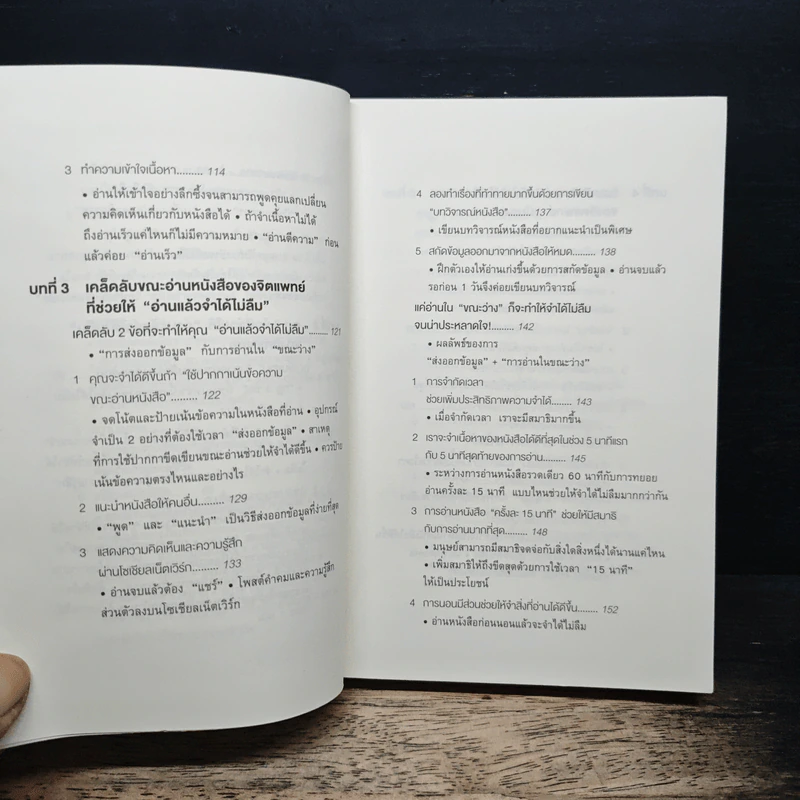 3 ทำความเข้าใจเนื้อหา......... 114
• อ่านให้เข้าใจอย่างลึกซึ้งจนสามารถพูดคุยแลกเปลี่ยน
ความคิดเห็นเกี่ยวกับหนังสือได้ • ถ้าจำเนื้อหาไม่ได้
ถึงอ่านเร็วแค่ไหนก็ไม่มีความหมาย • “อ่านตีความ” ก่อน
แล้วค่อย “อ่านเร็ว”
บทที่ 3 เคล็ดลับขณะอ่านหนังสือของจิตแพทย์
ที่ช่วยให้ “อ่านแล้วจำได้ไม่ลืม”
เคล็ดลับ 2 ข้อที่จะทำให้คุณ “อ่านแล้วจำได้ไม่ลืม”........ 121
• “การส่งออกข้อมูล” กับการอ่านใน “ขณะว่าง”
1 คุณจะจำได้ดีขึ้นถ้า “ใช้ปากกาเน้นข้อความ
ขณะอ่านหนังสือ”......... 122
• จดโน้ตและป้ายเน้นข้อความในหนังสือที่อ่าน • อุปกรณ์
จำเป็น 2 อย่างที่ต้องใช้เวลา “ส่งออกข้อมูล” • สาเหตุ
ที่การใช้ปากกาขีดเขียนขณะอ่านช่วยให้จำได้ดีขึ้น • ควรป้าย
เน้นข้อความตรงไหนและอย่างไร
2 แนะนำหนังสือให้คนอื่น......... 129
• “พูด” และ “แนะนำ” เป็นวิธีส่งออกข้อมูลที่ง่ายที่สุด
3 แสดงความคิดเห็นและความรู้สึก
ผ่านโซเชียลเน็ตเวิร์ก......... 133
• อ่านจบแล้วต้อง “แชร์” • โพสต์คำคมและความรู้สึก
ส่วนตัวลงบนโซเชียลเน็ตเวิร์ก
4 ลองทำเรื่องที่ท้าทายมากขึ้นด้วยการเขียน
“บทวิจารณ์หนังสือ”......... 137
• เขียนบทวิจารณ์หนังสือที่อยากแนะนำเป็นพิเศษ
5 สกัดข้อมูลออกมาจากหนังสือให้หมด......... 138
• ฝึกตัวเองให้อ่านเก่งขึ้นด้วยการสกัดข้อมูล • อ่านจบแล้ว
รอก่อน 1 วันจึงค่อยเขียนบทวิจารณ์
แค่อ่านใน “ขณะว่าง” ก็จะทำให้จำได้ไม่ลืม
จนน่าประหลาดใจ!......... 142
• ผลลัพธ์ของการ
“ส่งออกข้อมูล” + “การอ่านในขณะว่าง”
1 การจำกัดเวลา
ช่วยเพิ่มประสิทธิภาพความจำได้......... 143
• เมื่อจำกัดเวลา เราจะมีสมาธิมากขึ้น
2 เราจะจำเนื้อหาของหนังสือได้ดีที่สุดในช่วง 5 นาทีแรก
กับ 5 นาทีสุดท้ายของการอ่าน......... 145
• ระหว่างการอ่านหนังสือรวดเดียว 60 นาทีกับการทยอย
อ่านครั้งละ 15 นาที แบบไหนช่วยให้จำได้ไม่ลืมมากกว่ากัน
3 การอ่านหนังสือ “ครั้งละ 15 นาที” ช่วยให้มีสมาธิ
กับการอ่านมากที่สุด......... 148
• มนุษย์สามารถมีสมาธิจดจ่อกับสิ่งใดสิ่งหนึ่งได้นานแค่ไหน
• เพิ่มสมาธิให้ถึงขีดสุดด้วยการใช้เวลา “15 นาที”
ให้เป็นประโยชน์
4 การนอนมีส่วนช่วยให้จำสิ่งที่อ่านได้ดีขึ้น......... 152
• อ่านหนังสือก่อนนอนแล้วจะจำได้ไม่ลืม